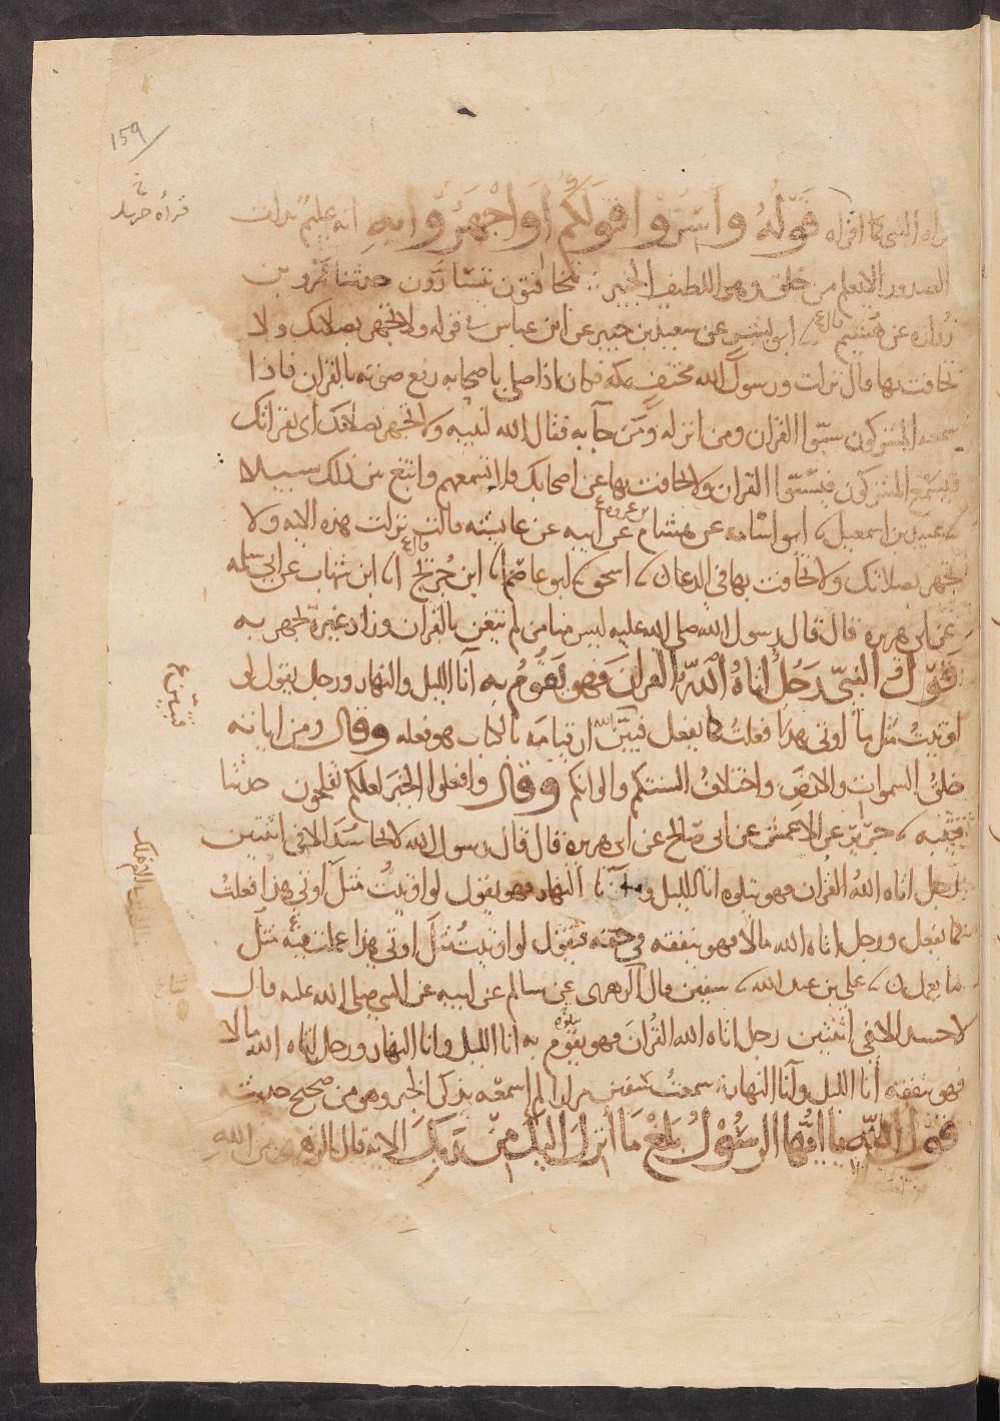 159
قرأه النبي كما اقرأه قَوْلُهُ وأسِرّوا قَوْلَكُمْ أَوِ اجْهَرُوا بِهِ انه عليمٌ بذات
الصدور الا يعلم من خلق وهو اللطيف الخبير يتخافتون يتسارّون حدثنا عَمرو بن
زُرارة عن هُشَيْم ابو بشر عن سعيد بن جبير عن ابن عباس في قوله ولا تجهر بصلاتك ولا
تخافت بها قال نزلت ورسول الله مختفٍ بمكة فكان اذا صلى باصحابه رفع صوته بالقران فاذا
سمعه المشركون سبّوا القران ومن انزله ومَن جآ به فقال الله لنبيه ولا تجهر بصلاتك أي بقراتك
فيسمع المشركون فيسبّوا القران ولا تخافت بها عن اصحابك فلا تسمعهم وابتغ بين ذلك سبيلا
عبيد بن اسمعيل ابو اسامة عن هشام بن عروة عن ابيه عن عايشة قالت نزلت هذه الاية ولا
تجهر بصلاتك ولا تخافت بها في الدعا اسحق ابو عاصم ابن جُريج ابن شهاب عن ابي سلمه
عن ابي هريرة قال قال رسول الله صلى الله عليه ليس منا من لم يتغن بالقران وزاد غيره يجهر به
قَوْلُ النبيّ رَجُلٌ اتاهُ اللّهُ القرانَ فهو يَقُومُ بِهِ آنآ الليل والنهار ورجل يقول لو
اوتيتُ مثل ما اوتي هذا فعلتُ كما يفعل فبيَّن الله ان قيامَه بالكتاب هو فعله وقال ومن اياته
خلقُ السموات والارضِ واختلافُ السنتكم والوانكم وقال وافعلوا الخيرَ لعلكم تفلحون حدثنا
قتيبه جريرٌ عن الاعمش عن ابي صالح عن ابي هريرة قال قال رسول الله لا تحاسُدَ الا في اثنتين
رجل اتاه اللهُ القُران فهو يتلوه انا الليل وآنا النهار فهو يقول لو اوتيتُ مثلَ اوتي هذا فعلتُ
كما يفعل ورجل اتاه الله مالًا فهو ينفقه في حقه فيقول لو اوتيتُ مثلَ اوتي هذا عملت فيه مثلَ
ما يعمل علي بن عبد الله سفين قال الزهري عن سالم عن ابيه عن النبي صلى الله عليه قال
لا حسد الا في اثنتين رجل اتاه الله القُرانَ فهو يقوم يتلوه به انا الليل وانا النهار ورجل اتاه الله مالا
فهو ينفقه آنا الليل وآنا النهار سمعتُ سفين مرارا لم اسمعه يذكر الخبر وهو من صحيح حديثه
قَوْلُ اللهِ يا ايُّها الرسُوْلُ بَلِّغْ مَا أُنزِلَ اليكَ مِنْ رَبِّكَ الاية قال الزهري من اللهِ